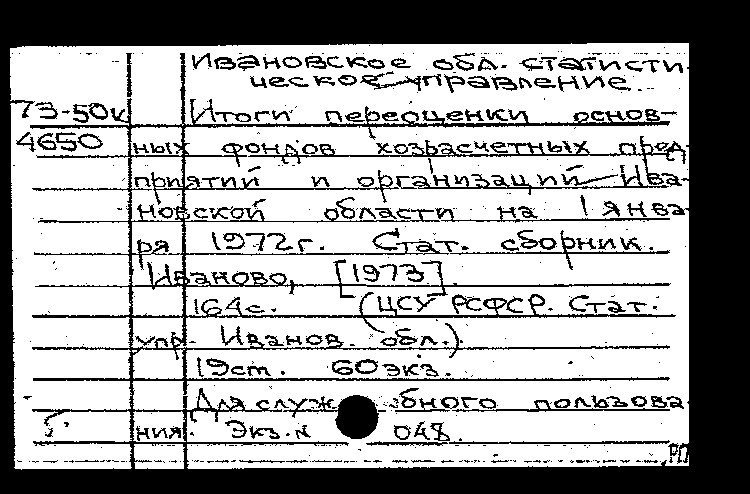 Ивановское обл. статисти-
ческое управление
73-50к Итоги переоценки основ-
4650 ных фондов хозрасчетных пред-
приятий и организаций Ива-
новской области на 1 янва-
ря 1972г. Стат. сборник.
Иваново, [1973].
164с. (ЦСУ РСФСР. Стат.
упр. Иванов. обл.).
19см. 60экз.
Для служ бного пользова-
ния. Экз.N 048.
РП